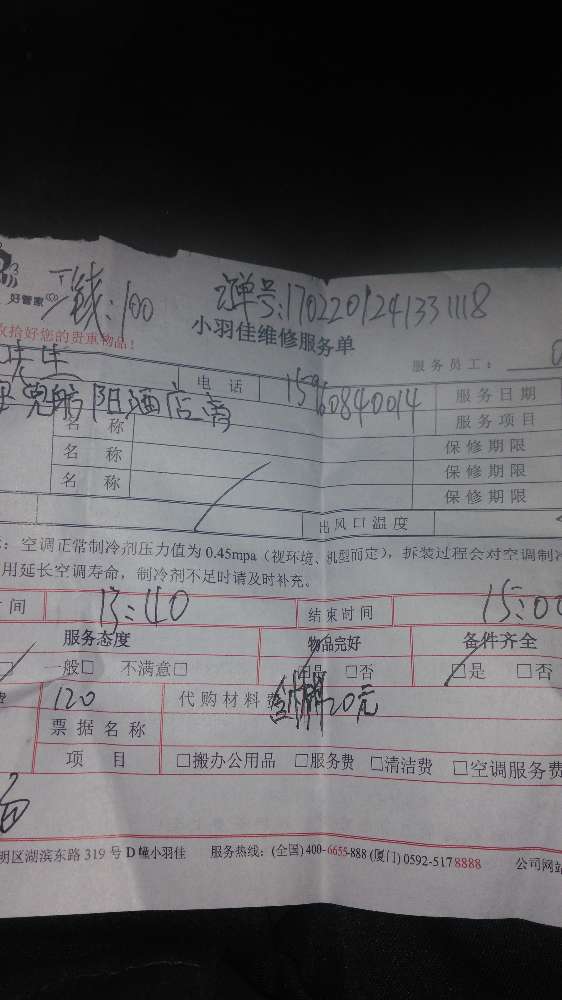 好管家
钱:100 单号:170220124133 1118
小羽佳维修服务单
收拾好您的贵重物品!
服务员工:
电 话 15960840014 服务日期
航阳酒店旁 服务项目
名 称
保修期限
名 称
保修期限
名 称
保修期限
出风口温度
:空调正常制冷剂压力值为0.45mpa(视环境、机型而定),拆装过程会对空调制冷
用延长空调寿命,制冷剂不足时请及时补充。
时间 13:40 结束时间 15:00
服务态度 物品完好 备件齐全
□ 一般□ 不满意□ □是 □否 □是 □否
费 120 代购材料费 20元
票据名称
项 目 □搬办公用品 □服务费 □清洁费 □空调服务费
明区湖滨东路319号D幢小羽佳 服务热线:(全国)400-6655-888(厦门)0592-5178888 公司网站